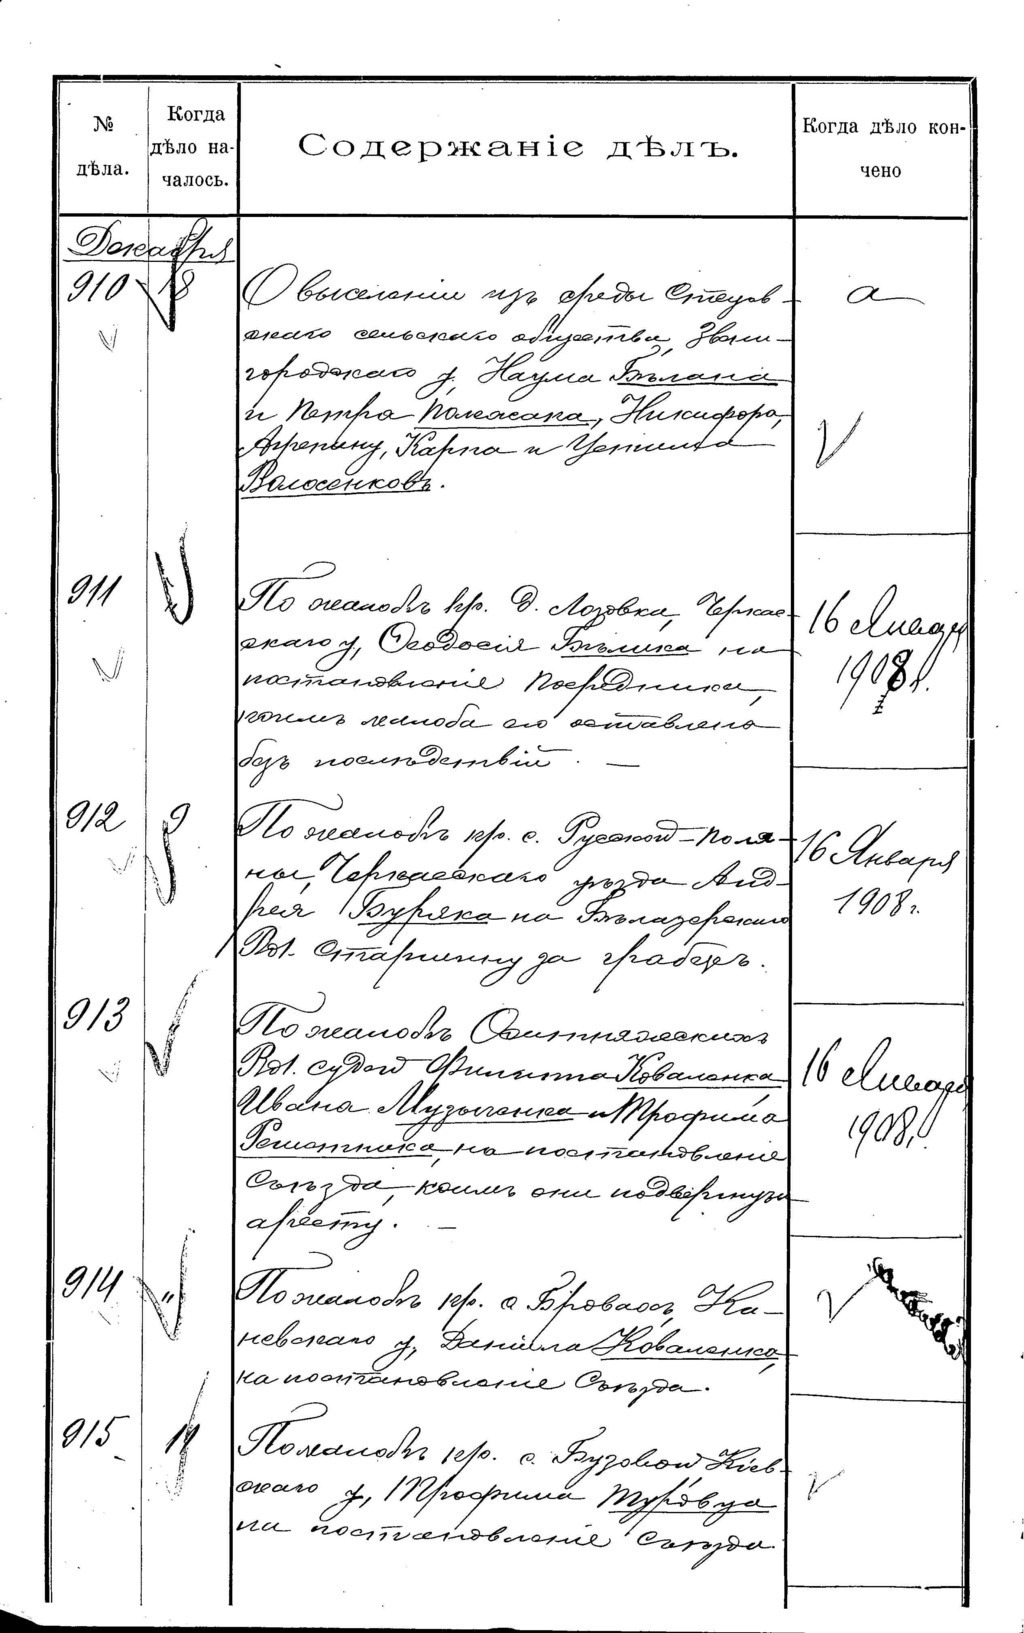 № дѣла.
Когда дѣло на-
чалось.
Содержаніе дѣлъ.
Когда дѣло кон-
чено
Декабря
910 18 О выселеніи изъ среды Стецов-
скаго сельскаго общества, Звени-
городскаго у. Наума Бѣлана
и Петра Поласапа, Никифора,
Агрепину, Карпа и Устима
Волосенковъ.
911 По жалобѣ кр. д. Лозовка, Черкас-
скаго у, Ѳеодосія Бѣлика на
постановленіе Посредника,
коимъ жалоба его оставлена
безъ послѣдствій. —
16 Января
1908 г.
912 9 По жалобѣ кр. с. Русской-Поля-
ны, Черкасскаго уѣзда Анд-
рея Буряка на Бѣлазерскаго
Вол. Старшину за грабежъ.
16 Января
1908 г.
913 По жалобѣ Оситняжскихъ
Вол. судей Филиппа Коваленка
Ивана Музыченка и Трофима
Решотника, на постановленіе
Съѣзда, коимъ они подвергнуты
аресту. —
16 Января
1908 г.
914 " По жалобѣ кр. с. Бровахъ, Ка-
невскаго у, Даніила Коваленка,
на постановленіе Съѣзда.
915 По жалобѣ кр. с. Бузовой Кіев-
скаго у, Трофима Туровца
на постановленіе Съѣзда